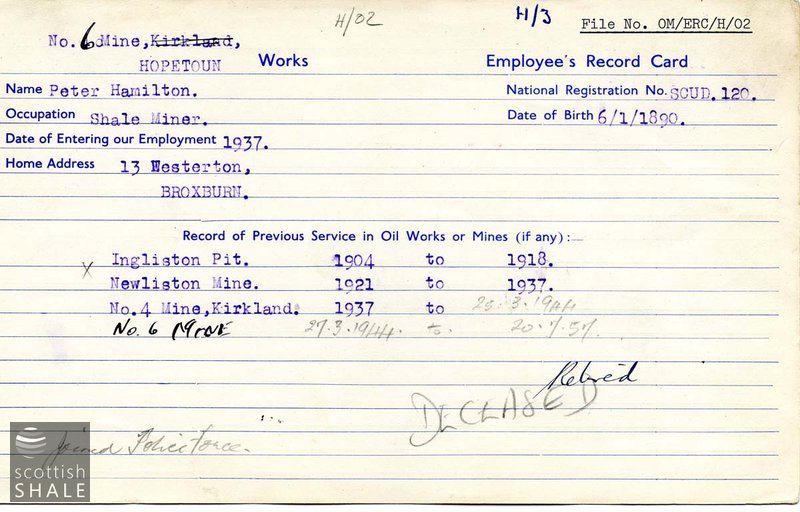 H/02 H/3 File No. OM/ERC/H/02
No. 6 Mine, Kirkland,
HOPETOUN Works Employee's Record Card
Name Peter Hamilton. National Registration No. SCUD. 120.
Occupation Shale Miner. Date of Birth 6/1/1890.
Date of Entering our Employment 1937.
Home Address 13 Westerton,
BROXBURN.
Record of Previous Service in Oil Works or Mines (if any):—
x Ingliston Pit. 1904 to 1918.
Newliston Mine. 1921 to 1937.
No.4 Mine, Kirkland. 1937 to 25.3.1944
No. 6 MINE 27.3.1944. to. 20.7.57.
Retired
DECEASED
Joined Police Force.
scottish
SHALE